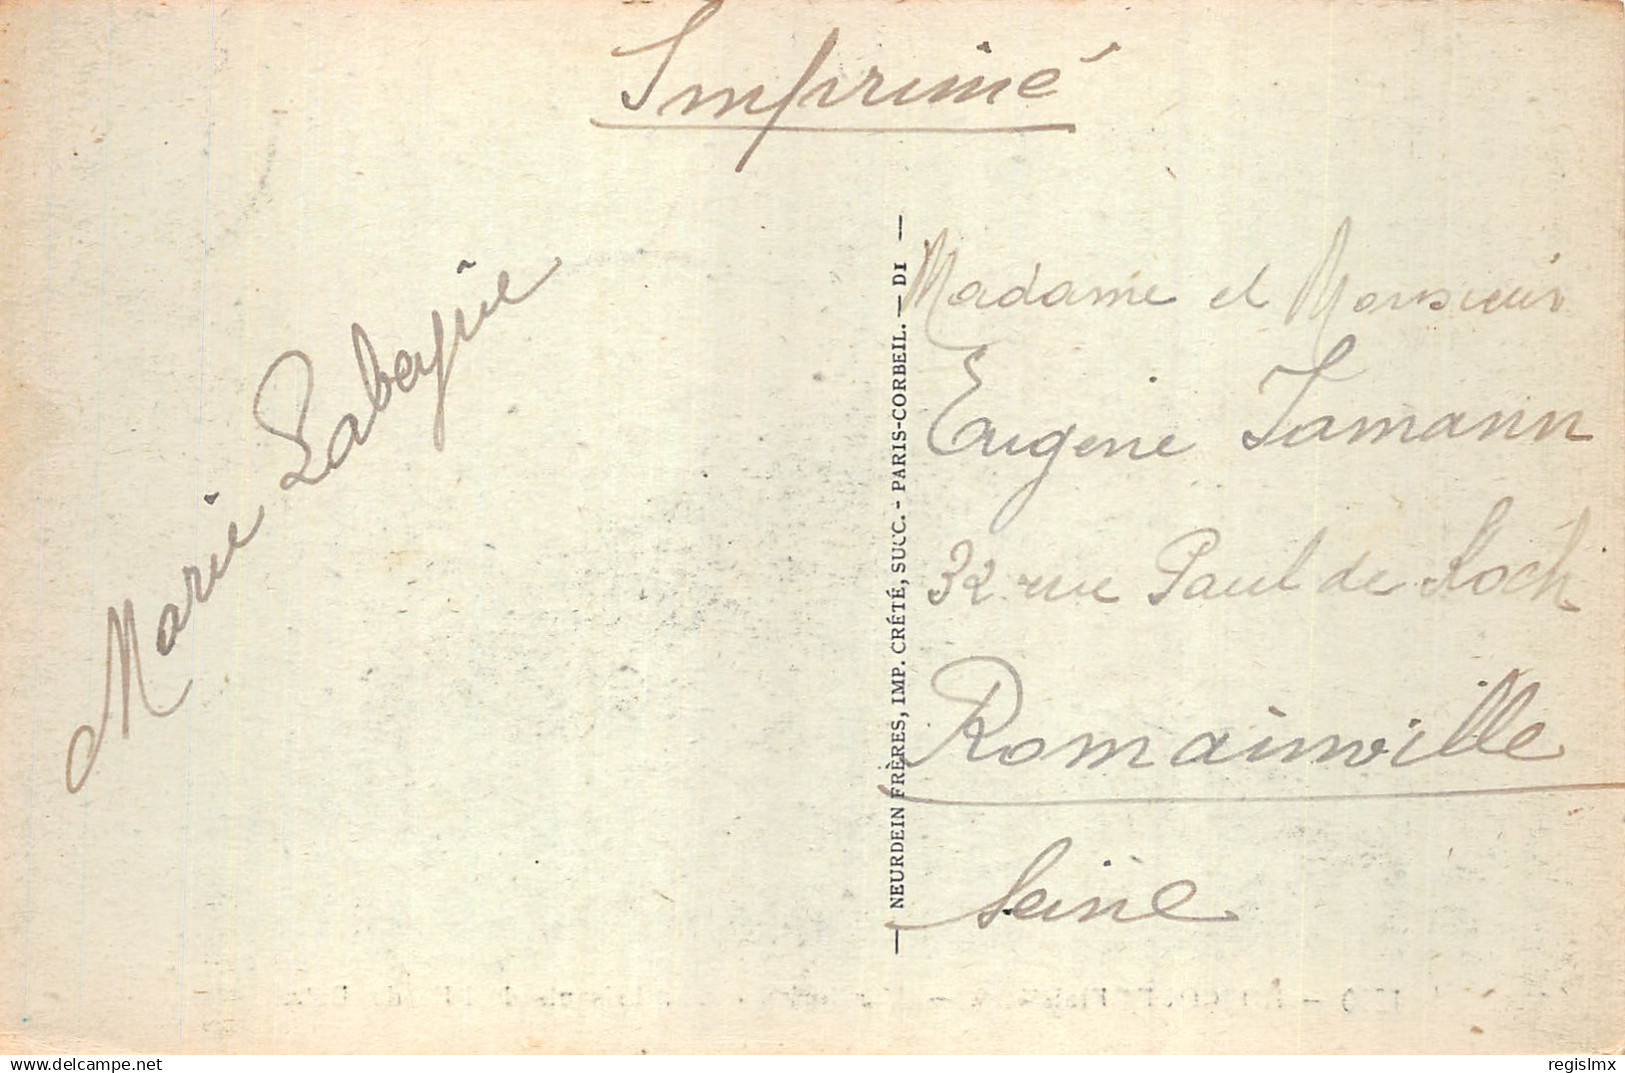 Imprimé
Marie Labeyrie
Madame et Monsieur
Eugène Jamann
32 rue Paul de Kock
Romainville
Seine
— NEURDEIN FRÈRES, IMP. CRÉTÉ, SUCC. - PARIS-CORBEIL. — DI —
Website : delcampe.net
regislmx